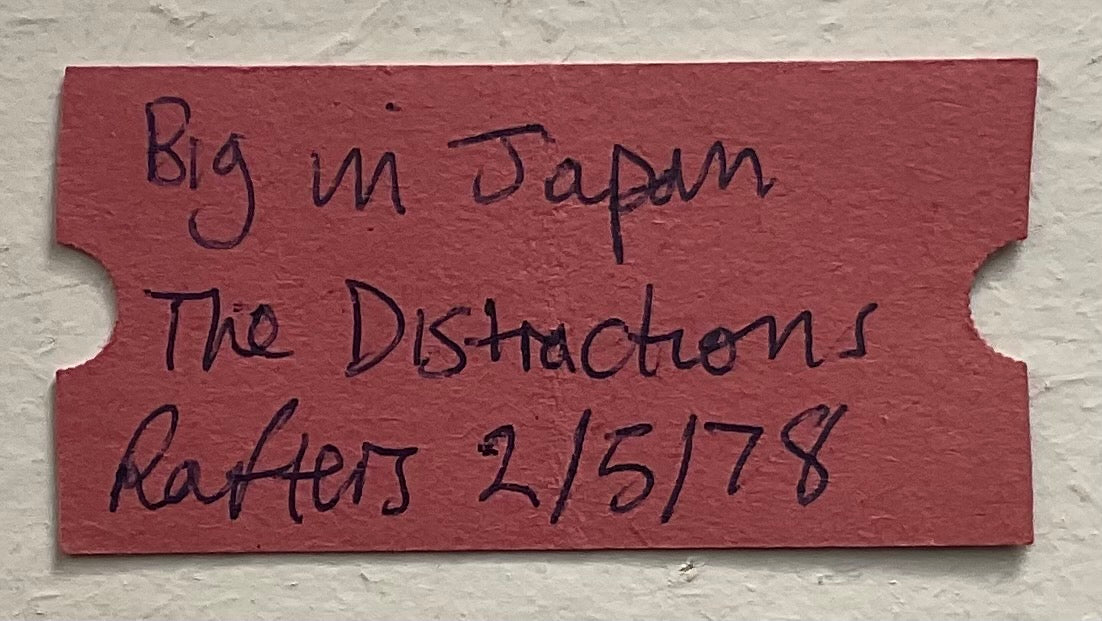 Big in Japan
The Distractions
Rafters 2/5/78